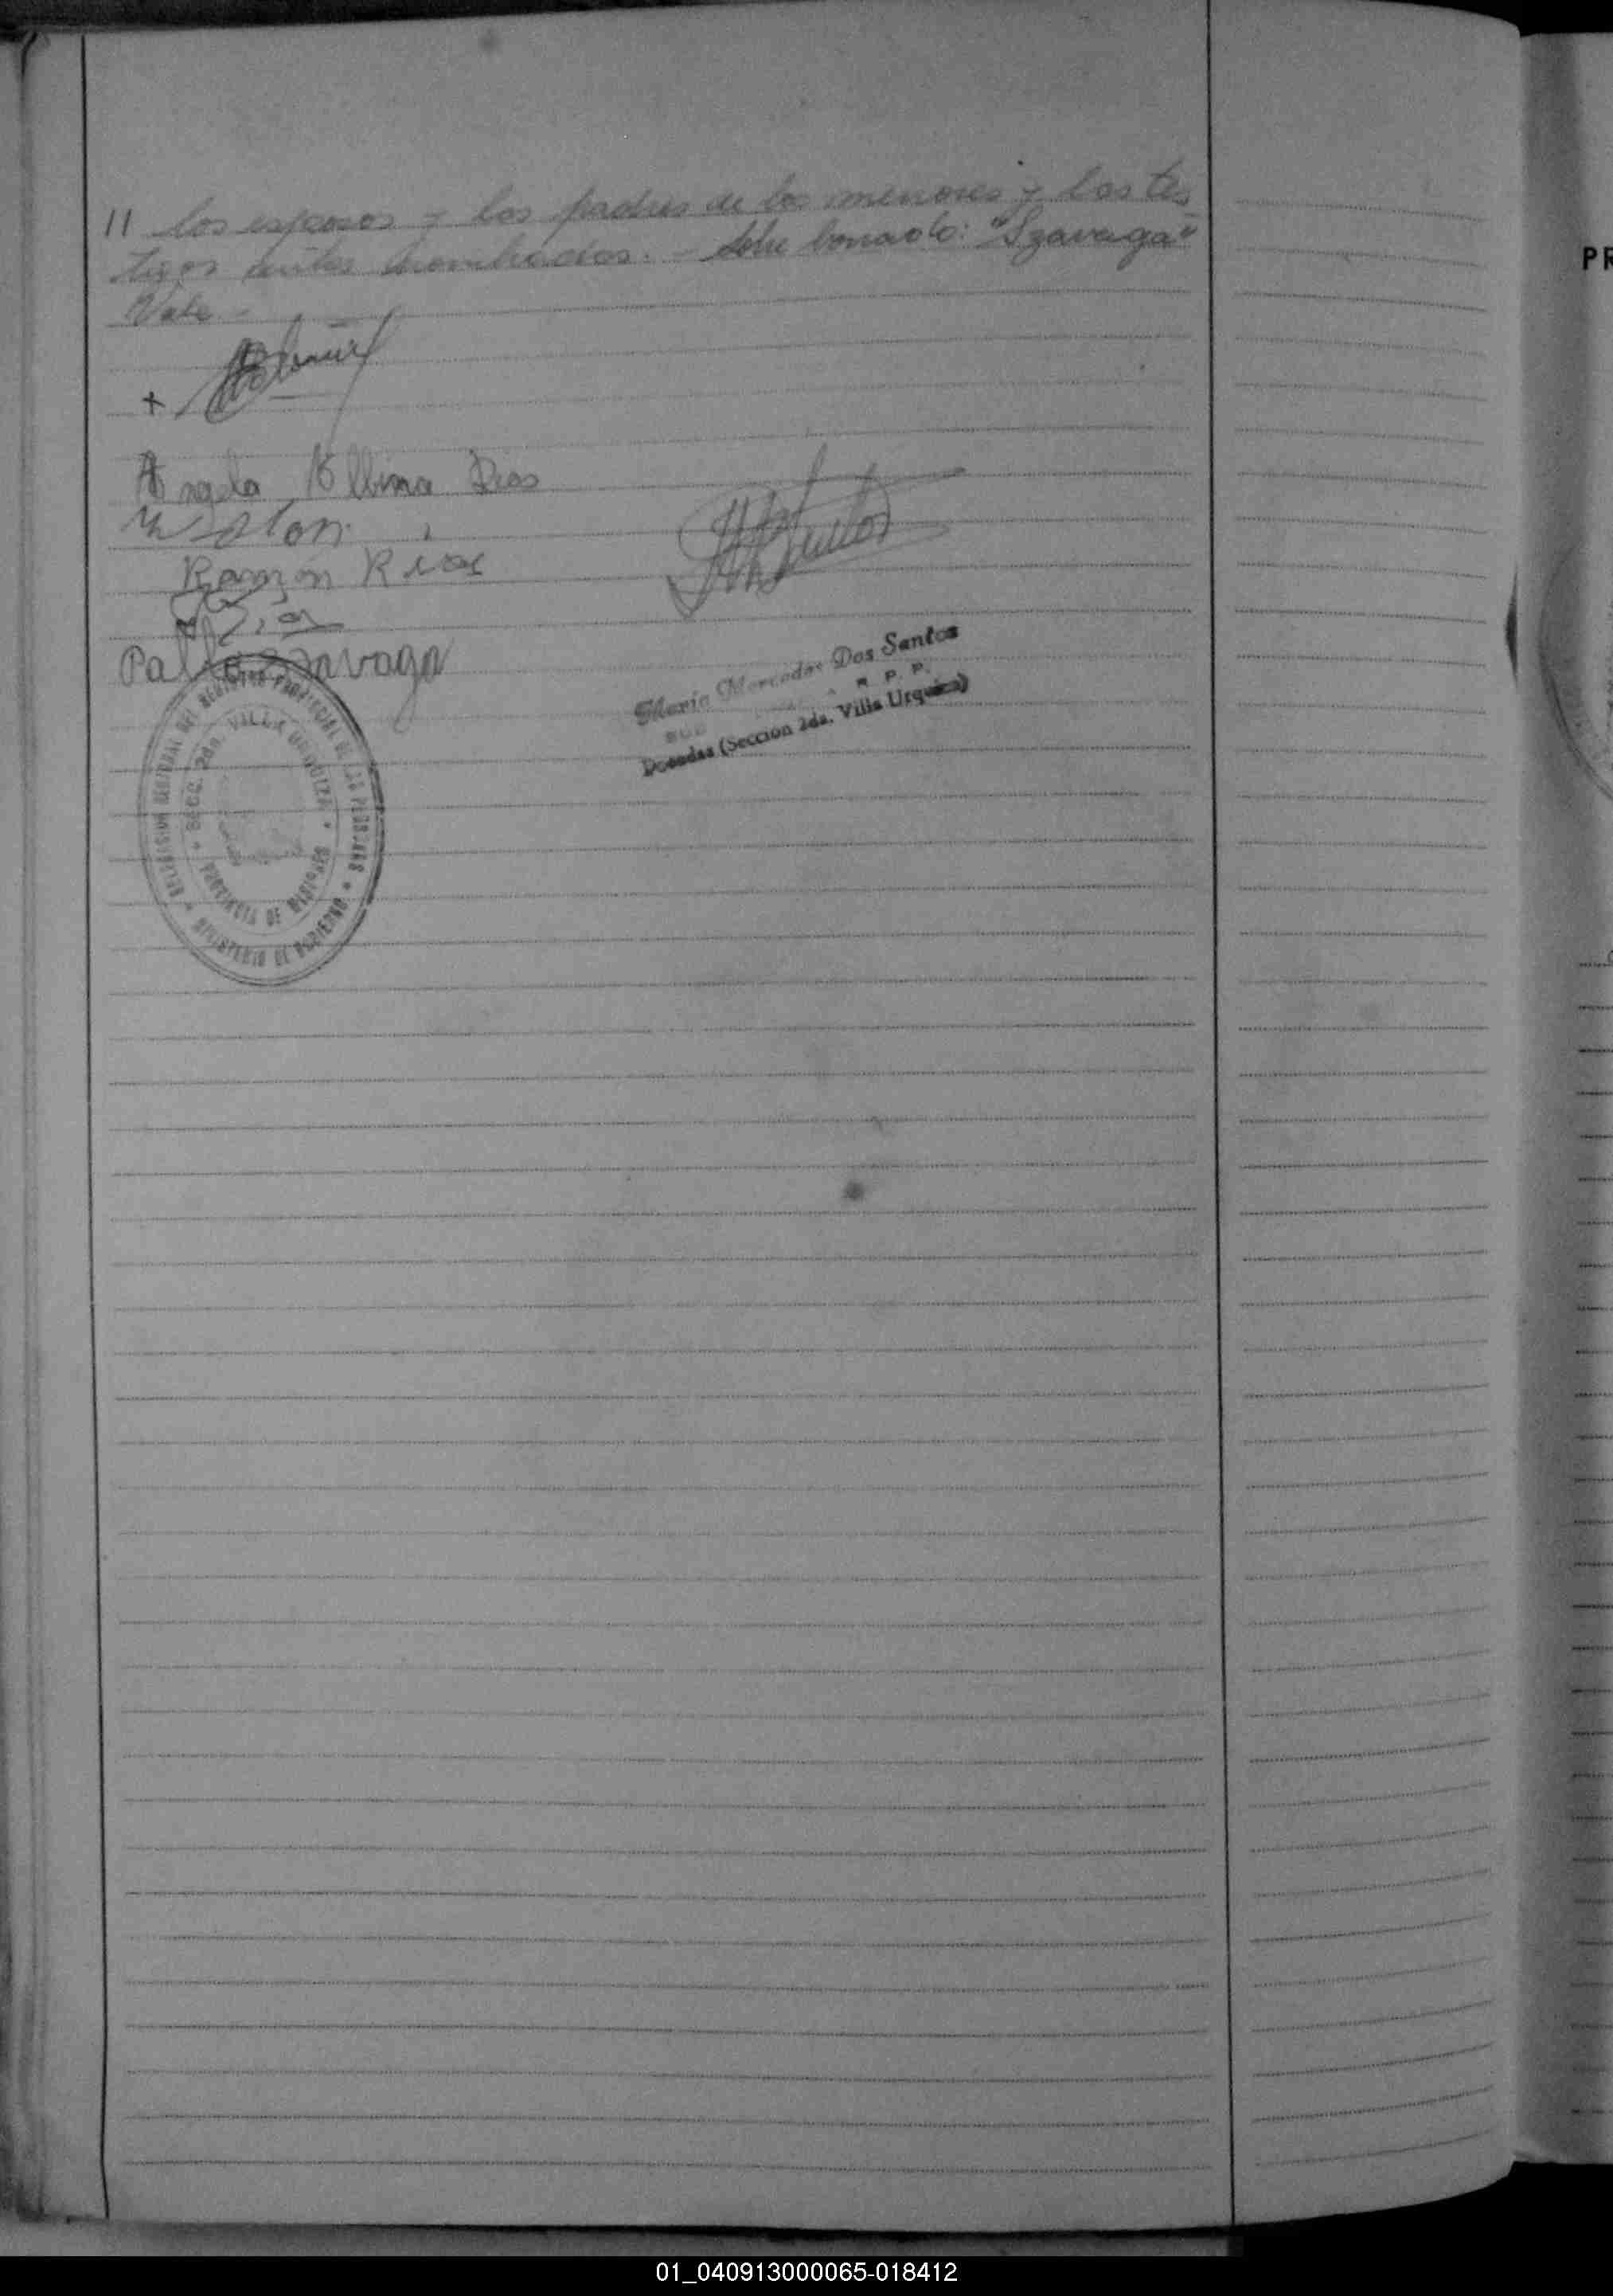 11 los esposos y los padres de los menores y los tes
tigos antes nombrados. - Sobre borrado: "Szavaga"
Vale -
+
Angela Albina Rios
Ramón Rios
Pablo Szavaga
Maria Mercedes Dos Santos
R. P. P.
Posadas (Seccion 2da. Villa Urquiza)
DELEGACION SECCIONAL DEL REGISTRO PROVINCIAL DE LAS PERSONAS * MINISTERIO DE GOBIERNO *
SECC. 2da. VILLA URQUIZA * PROVINCIA DE MISIONES *
PR
01_040913000065-018412